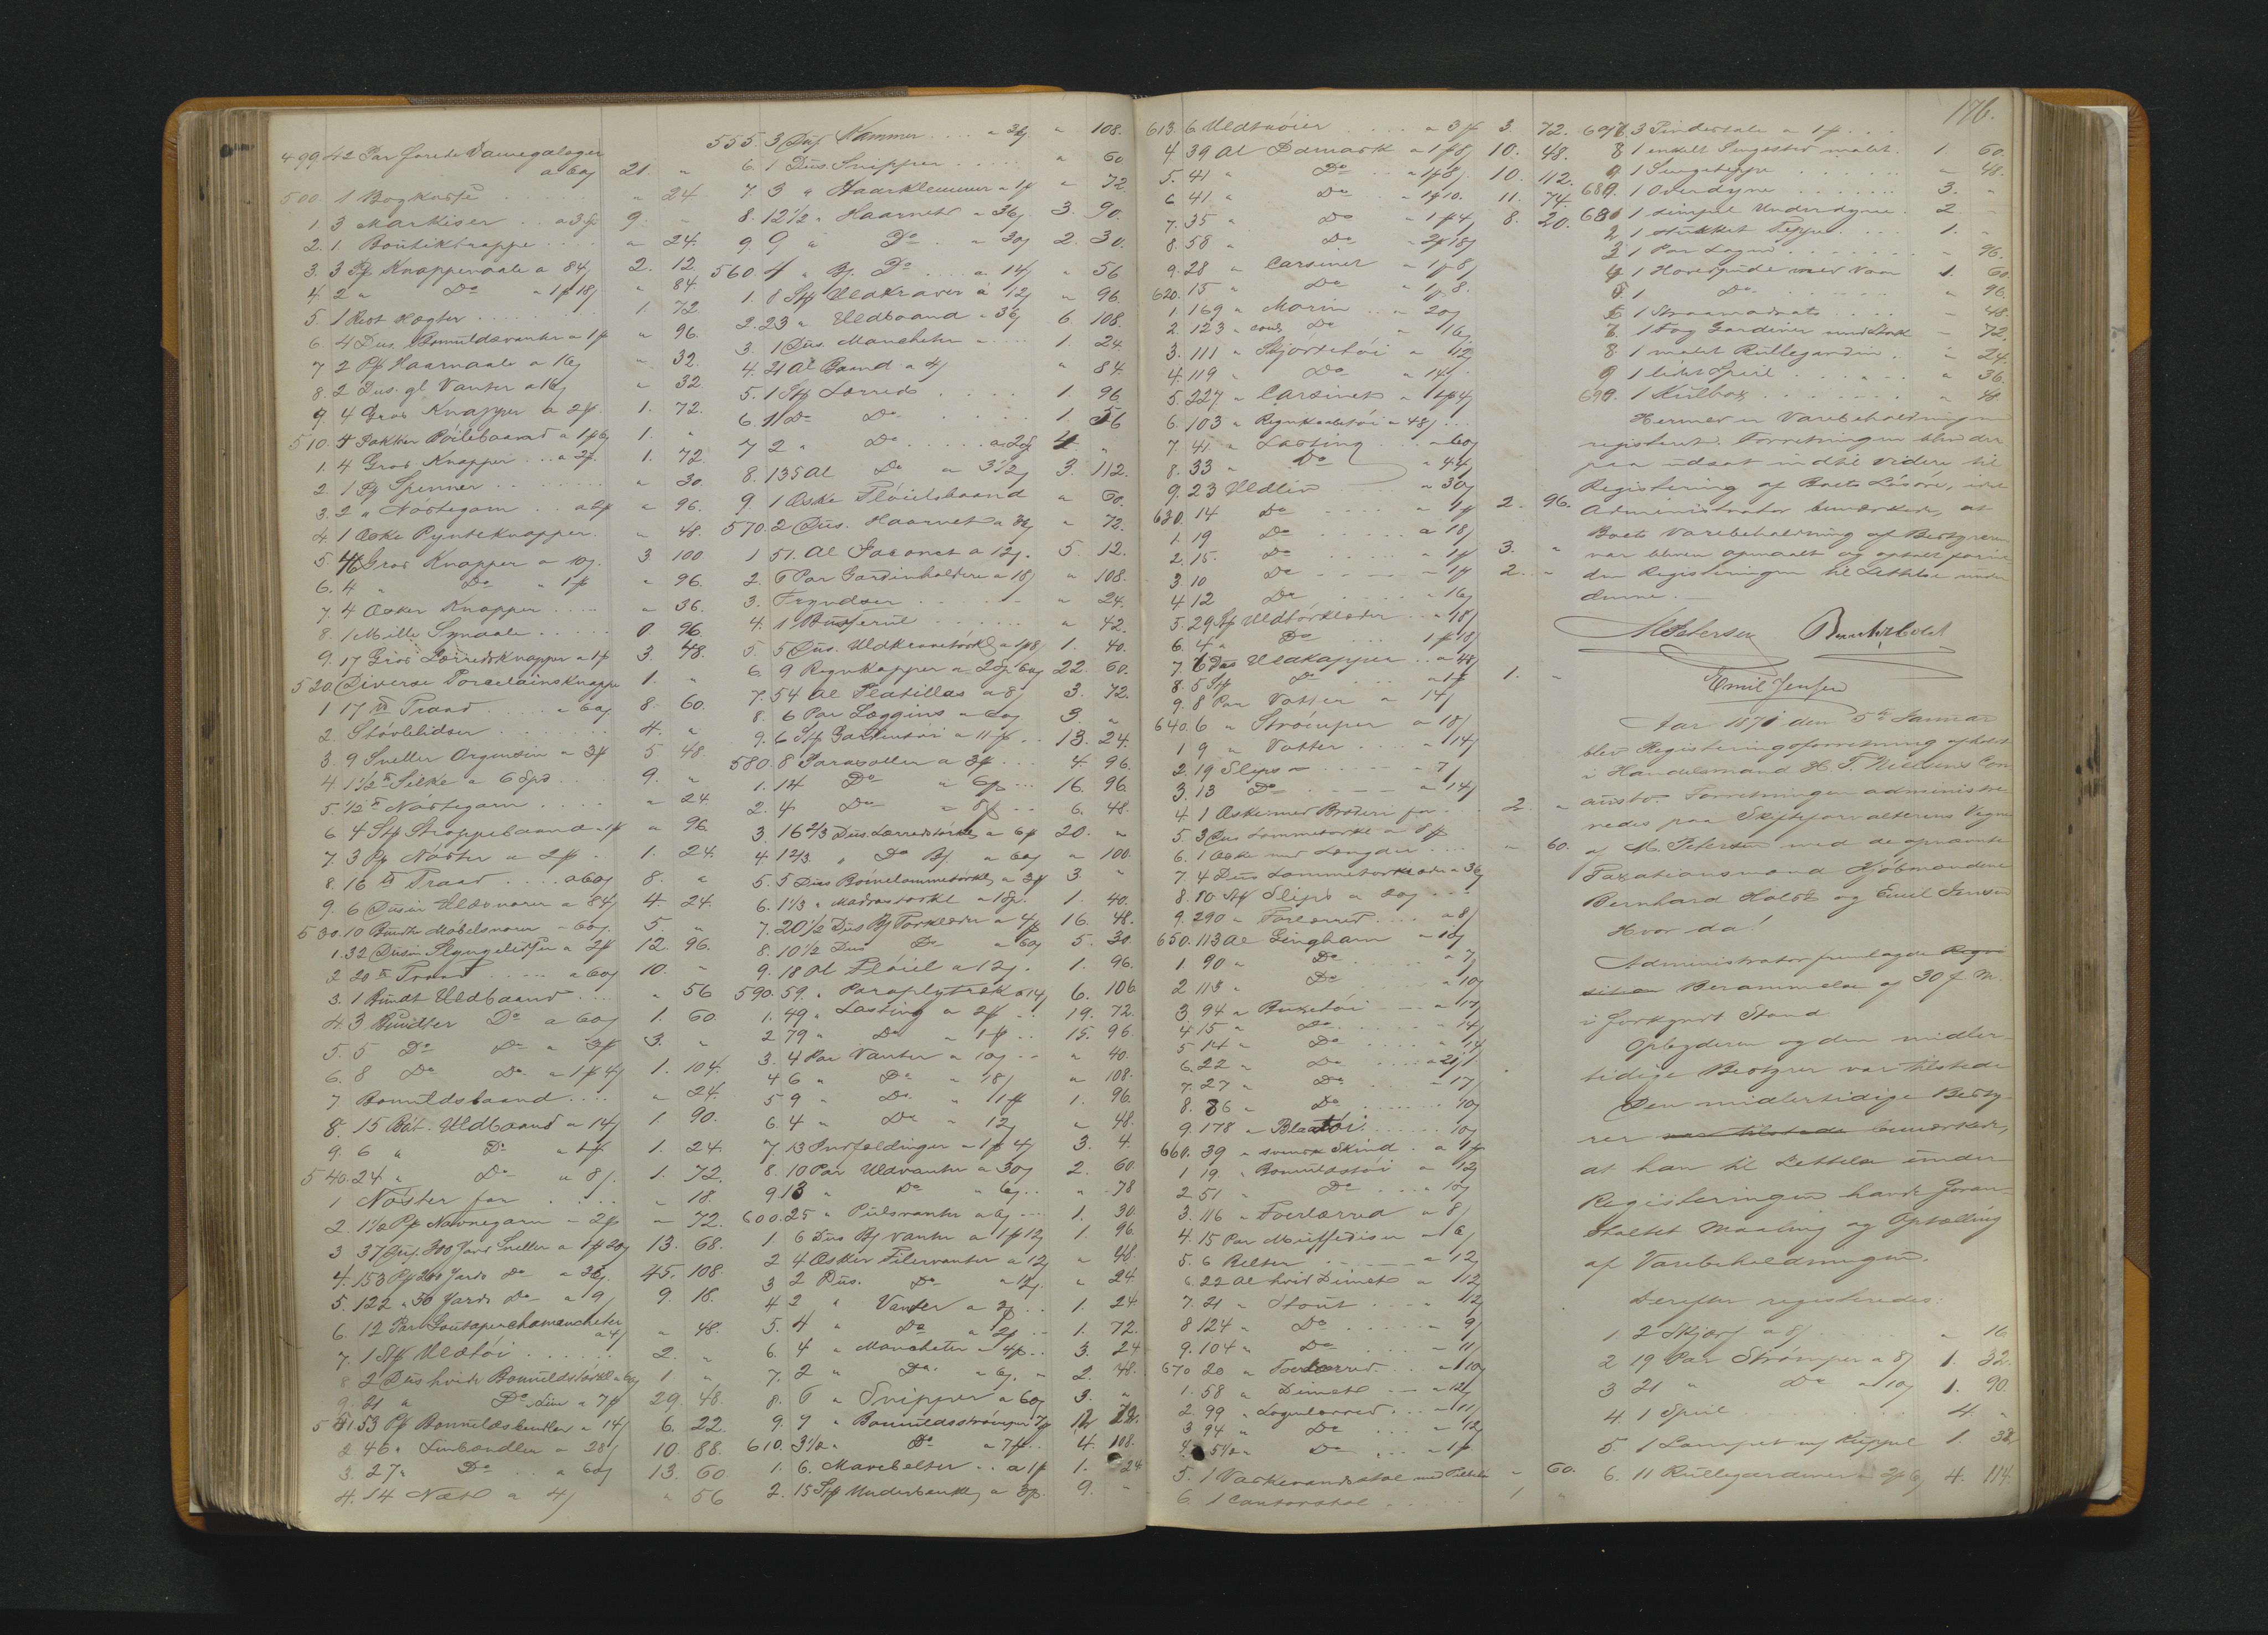 499. 42 Par forede Damegaloger
a 60 β 21. "
500. 1 Bogkasse " 24
1 3 Markiser a 3 β 9. -
2. 1. Boutiktrappe " 24.
3. 3 Pk Knappenaale a 84 β 2. 12
4. 2 " Do " 1 β 18 β " 84.
5. 1 Rest Hægter 1. 72.
6. 4 Dus. Bomuldsvanter a 1 β " 96.
7 2 Pk Haarnaale a 16 β " 32.
8. 2 Dus. gl Vanter a 16 β " 32
9. 4 Gros Knapper a 2 β. 1. 72.
510. 4 Pakker Böilebaand a 1 β 6 β 1. "
1. 4 Gros Knapper a 2 β. 1. 72.
2. 1 Pk Spenner " 30.
3. 2 " Nöstegarn " 96.
4. 1 Æske Pynteknapper. " 48.
5. 46 Gros Knapper a 10 β. 3 100
6. 4 " Do " 1 β " 96.
7. 4 Æsker Knapper " 36.
8. 1 Mille Synaale 0 96.
9. 17 Gros Lærredsknapper a 1 β 3. 48.
520. Diverse Porcelainsknapper 1. "
1 17 ℔ Traad a 60 β 8. 60.
2. Stövlelidser 4. "
3. 9 Sneller Organsin a 3 β 5 48.
4 1 1/2 ℔ Silke a 6 Spd 9. "
5. 1/2 ℔ Nöstegarn " 24
6 4 Stk Stroppebaand a 1 β " 96
7. 3 Pk Nöster a 2 β. 1. 24.
8. 16 ℔ Traad a 60 β 8. "
9. 6 Dusin Uldsnorer a 84 β 4. 24.
530. 10 Bundter Möbelsnorer - 60 β. 5. "
1. 32 Dusin Slyngelidser a 2 β 12. 96.
2 20 ℔ Traad a 60 β 10. "
3. 1 Bundt Uldbaand " 56
4. 3 Bundter Do a 60 β 1. 60.
5. 5 Do Do a 3 β 3. "
6. 8 Do Do a 1 β 4 β 1. 104.
7 Bomuldsbaand " 24.
8. 15 Böt. Uldbaand a 14 β 1. 90.
9. 6 " Do a 1 β 1. 24.
540. 24 " Do a 8 β. 1. 72.
1 Nöster for " 18.
2. 1 1/2 Pk Navnegarn a 2 β " 72.
3 37 Dus. 300 Yards Sneller a 1 β 20 β 13. 68.
4. 153 Pk 200 Yards Do a 36 β. 45. 108.
5. 122 " 50 Yards Do a 9 β 9. 18.
6. 12 Par
a 4 β " 48.
7. 1 Stk Uldtöi 2. "
8 2 Dus hvide Bomuldstörkl a 60 β 1 "
9. 21 " Do Lin a 7 β 29. 48.
551. 53 Pk Bomuldsbændler a 14 β 6. 22.
2. 46 " Linbændler a 28 β 10. 88.
3. 27 " Do a 60 β 13. 60.
4. 14 Næt a 4 β " 56
555. 3 Dus Kammer a 36 β " 108.
6. 1 Dus. Snipper " 60
7. 3 " Haarklemmer a 1 β " 72
8. 12 1/2 " Haarnet a 36 β 3. 90.
9. 9 " Do a 30 β 2. 30.
560. 4 " Bj. Do a 14 β " 56
1. 8 Stk Uldkraver a 12 β " 96.
2. 23 " Uldbaand a 36 β 6. 108.
3. 1 Dus. Mancheter 1. 24
4. 21 Al Baand a 4 β " 84
5. 1 Stk Lærred 1. 96
6. 1 Do Do 1. 56
7 2 " Do a 2 Sp. 4. "
8. 135 Al Do a 3 1/2 β 3. 112.
9. 1 Æske Flöielsbaand " 60.
570. 2 Dus. Haarnet a 36 β " 72.
1 51. Al Jaconet a 12 β. 5. 12.
2. 6 Par Gardinholdere a 18 β " 108.
3. Fryndser " 24.
4. 1 " 42.
5. 5 Dus. a 1 β 8 β 1. 40.
6. 9 Regnkapper a 2 Sp. 60 β 22. 60.
7. 54 Al Platillas a 8 β 3. 72.
8. 6 Par Leggins a 60 β 3. "
9. 6 Stk Gardintöi a 11 β 13. 24.
580. 8 Parasoller a 3 β 4. 96.
1. 14 Do " 6 β 16. 96
2. 4. Do " 8 β 6. 48.
3. 16 2/3 Dus. Lærredstörkl a 6 β 20. "
4. 1 2/3 " Do Bj. a 60 β " 100.
5. 5 Dus Börnelommetörkl a 3 β 3. "
6. 1 1/3 " Madrastörkl a 1 Sp. 1. 40.
7. 20 1/2 Dus Bj Törklæder a 4 β 16. 48.
8. 10 1/2 Dus Do a 60 β 5. 30
9. 18 Al Flöiel a 12 β. 1. 96.
590. 59. " Paraplytræk a 14 β 6. 106
1. 49 " Lasting a 2 β 19. 72.
2 79 " Do " 1 β 15. 96.
3. 4 Par Vanter a 10 β " 40.
4 6 " Do " 18 β " 108.
5 9 " Do " 1 β 1. 96.
6. 4 " Do " 12 β " 48.
7. 13 Indfoldinger a 1 β 4 β 3. 4.
8. 10 Par Uldvanter a 30 β 2. 60.
9. 13 " Do " 6 β " 78
600. 25 " Pulsvanter a 6 β 1. 30.
1. 6 Dus Bj Vanter a 1 β 12 β 1. 96
2 4 Æsker Filetvanter a 12 β " 48.
3 2 Dus. Do a 12 β. " 24.
4 2 " Vanter a 3 β 1. 24
5. 4 " Do " 2 β 1. 72.
6. 4 " Mancheter " 4 β 3. 24
7. 2 " Do. 2. 48.
8. 6 " Snipper a 60 β 3. "
9. 7 " Bomuldsströmper 7 β 12 72.
610. 3 1/2 " Do a 7 β 4. 108.
1. 6. Mavebelter a 1 β 1. 24
2. 15 Stk Underbenkl a 3 β. 9. "
613. 6 Uldtröier a 3 β 3. 72.
4. 39 Al Damask a 1 β 8 β 10. 48.
5. 41 " Do a 1 β 8 β. 10. 112.
6 41 " Do a 1 β 10. 11. 74.
7. 35 " Do a 1 β 4 β 8. 20.
8. 58 " Do a 2 β 18 β
9. 28 " Carsinet a 1 β 8 β
620. 15 " Do a 1 β 8.
1. 169 " Morin a 20 β
2. 123 " couls Do " 16 β
3. 111 " Skjortetöi a 12 β
4. 119 " Do " 14 β
5. 227 " Carsinet a 1 β 4 β
6. 103 " Regnkaabetöi a 48 β
7. 41 " Lasting a 60 β
8. 33 " Do " 44 β
9. 23 Uldliv a 30 β
630. 14 Do a 1 β 2. 96.
1. 19 Do a 18 β
2. 15. Do a 1 β 3. "
3. 10 Do a 1 β 2. "
4 12 Do a 16 β
5. 29 Stk Uldtörklæder a 18 β
6. 4 " Do 1 β 18 β
7. 6 Dus Uldkapper a 48 β
8. 5 Stk Do a 1 β 1. "
9. 8 Par Votter a 14 β
640. 6 " Strömper a 18 β
1 9 " Votter " 14 β
2. 19 Slips " 7 β
3. 13 Do a 14 β
4. 1 Æske med Broderi for 2. "
5. 3 Dus Lommetörkl a 8 β
6. 1 Æske med Længder " 60.
7. 4 Dus Lommetörklæder a 36 β
8. 80 Stk Slips a 20 β
9. 290 " Forlærred a 8 β
650. 113 Al Gingham a 10 β
1. 90 " Do " 7 β
2 113 " Do a 10 β
3. 94 " Buxetöi a 14 β
4 15 " Do " 14 β
5 14 " Do " 14 β
6. 22 " Do a 21 β
7. 27 " Do " 17 β
8. 36 " Do 10 β
9. 178 " Blaatöi 10 β
660. 39 " svensk Skind a 1 β
1 19. " Bomuldstöi a 12 β
2. 51 " Do " 10 β
3. 116 " Foerlærred a 8 β
4. 15 Par Muffediser a 6 β
5. 6 Belter a 12 β
6. 22 Al hvid Dimet a 12 β
7. 21 " Stout " 12 β
8 124 " Do " 9 β
9. 104 " Do - 11 β
670 20 " Foerlærred a 10 β
1. 58 " Dimet a 12 β
2. 99 " Lagenlærred - 11 β
3. 94 " Do " 12 β
4. 54 " Do a 1 β
5. 1 Vaskevandsstol med " 60.
6. 1 Contorstol 1 "
176.
677. 3 Pindestole a 1 β
8 1 enkelt Sengested malet. 1. 60.
9 1 Sengetæppe " 48.
680. 1 Overdyne 3. "
681 1 simpel Underdyne. 2. -
2. 1 stukket Teppe 1. -
3 1 Par Lagen - 96.
4 1 Hovedpude med Vaar 1. 60.
5 1 Do " 96.
6 1 Straamadrats - 48.
7. 1 Fag Gardiner med Stok - 72.
8. 1 malet Rullegardin. " 24.
9 1 lidet Speil " 36.
690. 1 Kulbox " 48
Hermed er Varebeholdningen
registeret. Forretningen blev der
paa udsat indtil videre til
Registering af Boets Lösöre, idet
Administrator bemærkede, at
Boets Varebeholdning af Bestyreren
var bleven opmaalt og optalt forin-
den Registeringen til Lettelse under
denne. —
M Petersen Bernh Holdt
Emil Jensen
Aar 1871 den 5te Januar
blev Registeringsforretning afholdt
i Handelsmand H. T. Nielsens Con
cursbo. Forretningen administre
redes paa Skifteforvalterens Vegne
af M. Petersen med de opnævnte
Taxationsmænd Kjöbmændene
Bernhard Holdt og Emil Jensen
Hvor da!
Administrator fremlagde Regi
sition Berammelse af 30 f. M.
i forkyndt Stand.
Opbyderen og den midler-
tidige Bestyrer var tilstede
Den midlertidige Besty-
rer var tilstede bemærkede,
at han til Lettelse under
Registeringen havde foran-
staltet Maaling og Optælling
af Varebeholdningen.
Derefter registeredes:
1. 2 Skjærf a 8 β " 16
2 19 Par Strömper a 8 β 1. 32.
3 21 " Do a 10 β 1. 90.
4. 1 Speil 4. "
5. 1 Lampet m/ Kuppel 1. 38.
6. 11 Rullegardiner a 2 β 6 β 4. 114.